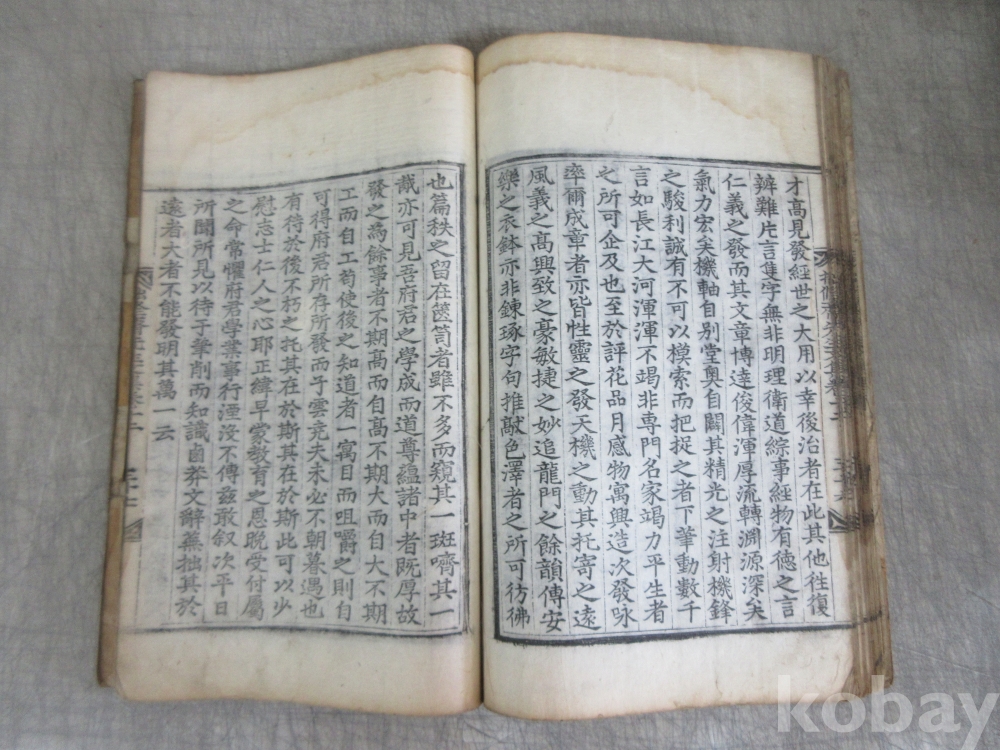 才高見發經世之大用以幸後治者在此其他往復
辨難片言隻字無非明理衛道綜事經物有德之言
仁義之發而其文章博達俊偉渾厚流轉淵源深矣
氣力宏矣機軸自別堂奧自闢其精光之注射機鋒
之駿利誠有不可以模索而把捉之者下筆動數千
言如長江大河渾渾不竭非專門名家竭力平生者
之所可企及也至於評花品月感物寓興造次發咏
率爾成章者亦皆性靈之發天機之動其托寄之遠
風義之高興致之豪敏捷之妙追龍門之餘韻傳安
樂之衣鉢亦非鍊琢字句推敲色澤者之所可彷彿
也篇秩之留在篋笥者雖不多而窺其一斑嚌其一
胾亦可見吾府君之學成而道尊蘊諸中者既厚故
發之爲餘事者不期高而自高不期大而自大不期
工而自工苟使後之知道者一寓目而咀嚼之則自
可得府君所存所發而子雲堯夫未必不朝暮遇也
有待於後不朽之托其在於斯其在於斯此可以少
慰志士仁人之心耶正緯早蒙敎育之恩晩受付屬
之命常懼府君學業事行湮沒不傳玆敢叙次平日
所聞所見以待于筆削而知識鹵莽文辭蕪拙其於
遠者大者不能發明其萬一云
kobay